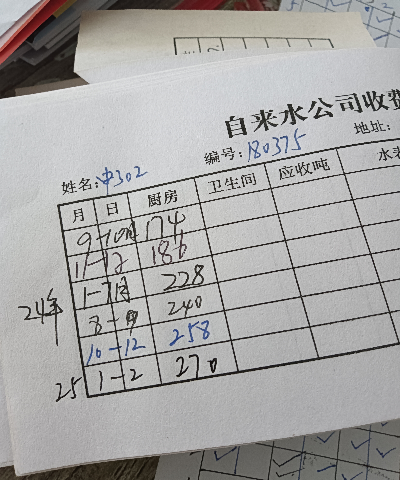 自来水公司收费
编号:180375 地址:
姓名:中302
月 日 厨房 卫生间 应收吨 水表
9-10月 174
11-12 186
24年 1-7月 228
8-9 240
10-12 258
25 1-2 270